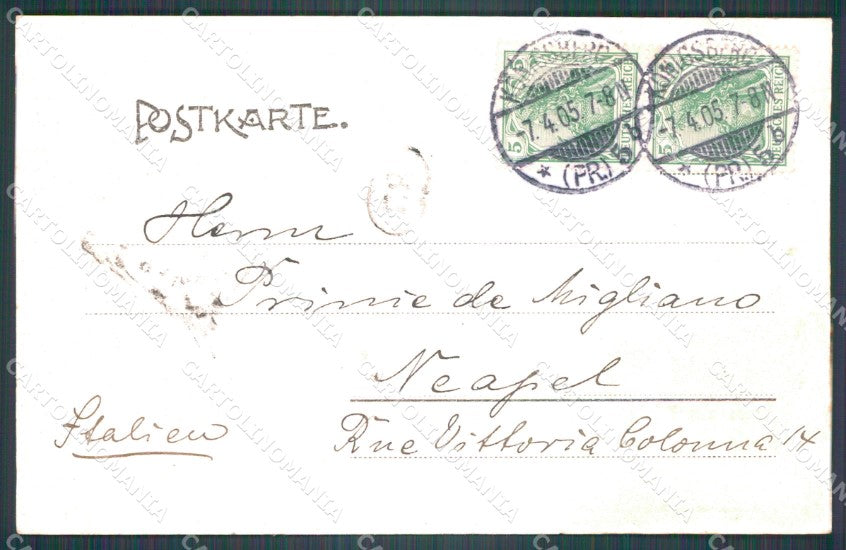 POSTKARTE.
KÖNIGSBERG
-7.4.05. 7-8N
* (PR.) 5 b
KÖNIGSBERG
-7.4.05. 7-8N
* (PR.) 5 b
5 DEUTSCHES REICH
5 DEUTSCHES REICH
Herrn
Prince de Migliano
Neapel
Italien
Rue Vittoria Colonna 14
CARTOLINOMANIA